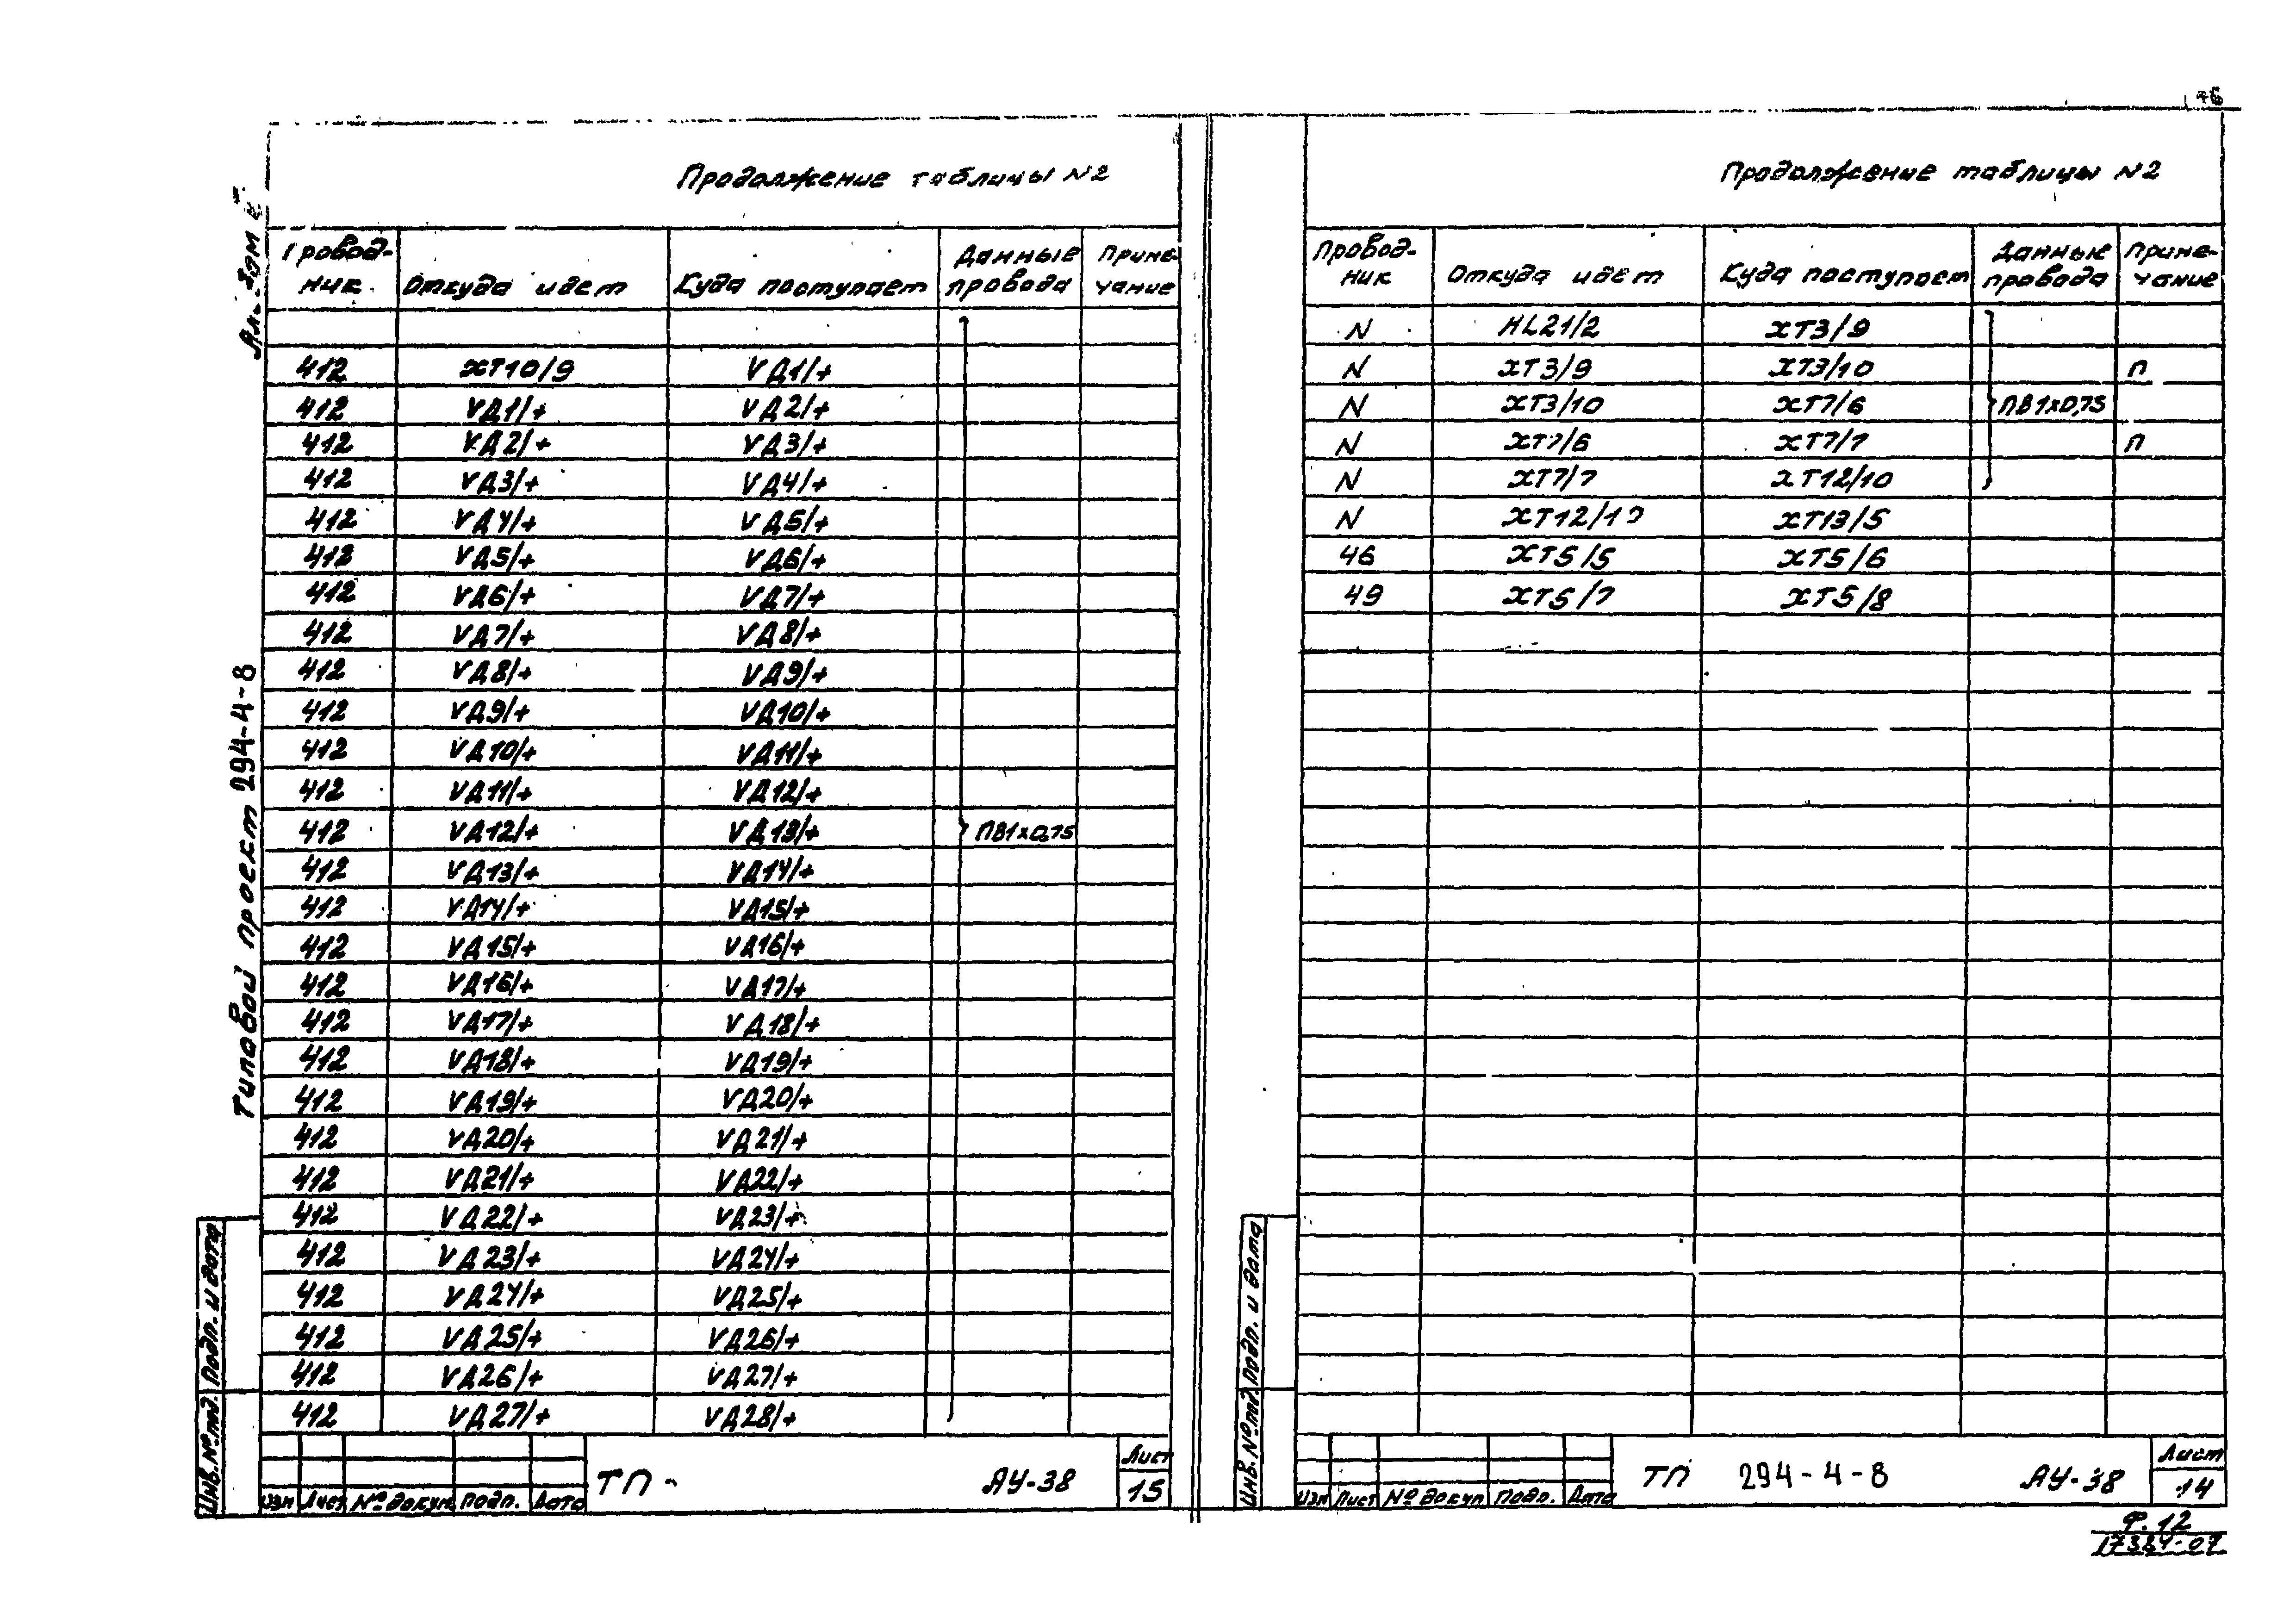 76
Продолжение таблицы N2
Провод-
ник
Откуда идет
Куда поступает
Данные
провода
Приме-
чание
412 ХТ10/9 VД1/+
412 VД1/+ VД2/+
412 VД2/+ VД3/+
412 VД3/+ VД4/+
412 VД4/+ VД5/+
412 VД5/+ VД6/+
412 VД6/+ VД7/+
412 VД7/+ VД8/+
412 VД8/+ VД9/+
412 VД9/+ VД10/+
412 VД10/+ VД11/+
412 VД11/+ VД12/+
412 VД12/+ VД13/+ ПВ1х0,75
412 VД13/+ VД14/+
412 VД14/+ VД15/+
412 VД15/+ VД16/+
412 VД16/+ VД17/+
412 VД17/+ VД18/+
412 VД18/+ VД19/+
412 VД19/+ VД20/+
412 VД20/+ VД21/+
412 VД21/+ VД22/+
412 VД22/+ VД23/+
412 VД23/+ VД24/+
412 VД24/+ VД25/+
412 VД25/+ VД26/+
412 VД26/+ VД27/+
412 VД27/+ VД28/+
Изм Лист № докум Подп. Дата
ТП -
АУ-38
Лист
15
Типовой проект 294-4-8
Инв. № под. Подп. и дата
Продолжение таблицы N2
Провод-
ник
Откуда идет
Куда поступает
Данные
провода
Приме-
чание
N HL21/2 ХТ3/9
N ХТ3/9 ХТ3/10 П
N ХТ3/10 ХТ7/6 ПВ1х0,75
N ХТ7/6 ХТ7/7 П
N ХТ7/7 ХТ12/10
N ХТ12/10 ХТ13/5
46 ХТ5/5 ХТ5/6
49 ХТ5/7 ХТ5/8
Изм Лист № докум Подп. Дата
ТП 294-4-8
АУ-38
Лист
14
Инв. № под. Подп. и дата
Ф. 12